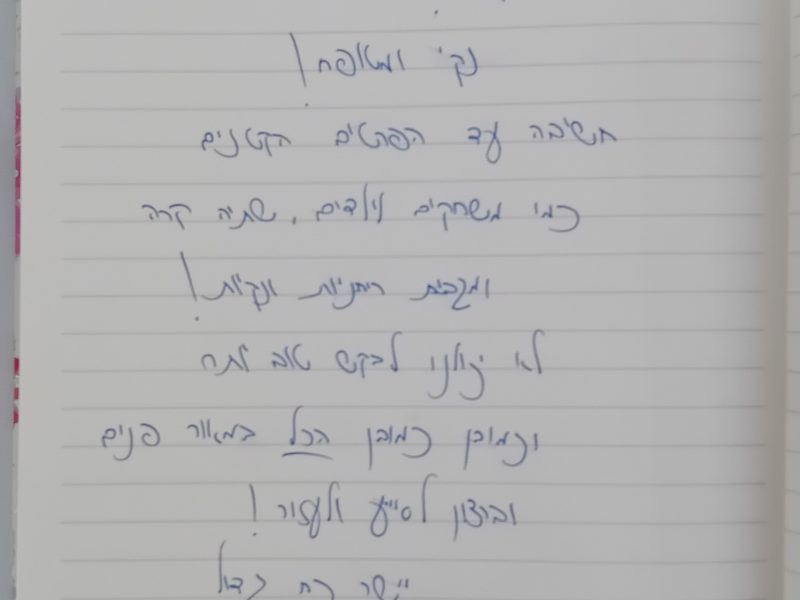 נקי ומטופח!
חשיבה עד הפרטים הקטנים
כמו משחקים לילדים, שתיה קרה
ומגבות ריחניות ונקיות!
לא יכולנו לבקש טוב יותר
וכמובן כמובן הכל במאור פנים
וברצון לסייע ולעזור!
יישר כח גדול